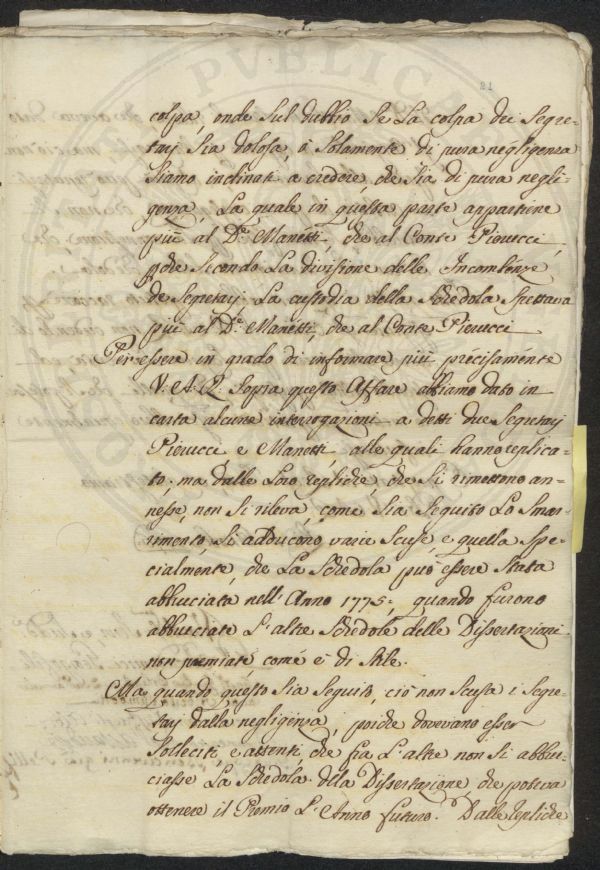 21
colpa, onde sul dubbio se la colpa dei Segre-
tarj sia dolosa, ò solamente di pura negligenza
siamo inclinati a credere, che sia di pura negli-
genza, la quale in questa parte appartiene
più al D.r Manetti, che al Conte Pierucci,
perche secondo la divisione delle Incombenze
de Segretarj la custodia della Schedola spettava
più al D.r Manetti, che al Conte Pierucci
Per essere in grado di informare più precisaménte
V. A. R. sopra questo Affare abbiamo dato in
carta alcune interrogazioni a detti due Segretarj
Pierucci e Manetti, alle quali hanno replica-
to; ma dalle loro repliche, che si rimettono an-
nesse, non si rileva, come sia seguito lo smar-
rimento, si adducono varie scuse, e quella spe-
cialmente, che la Schedola può essere stata
abbruciata nell'Anno 1775; quando furono
abbruciate l'altre Schedole delle Dissertazioni
non premiate, comé è di stile.
Ma quando questo sia seguito, ciò non scusa i Segre-
tarj dalla negligenza, poiche dovevano esser
solleciti, e attenti, che fra l'altre non si abbru-
ciasse la Schedola della Dissertazione, che poteva
ottenere il Premio l'Anno futuro. Dalle repliche
PVBLICA